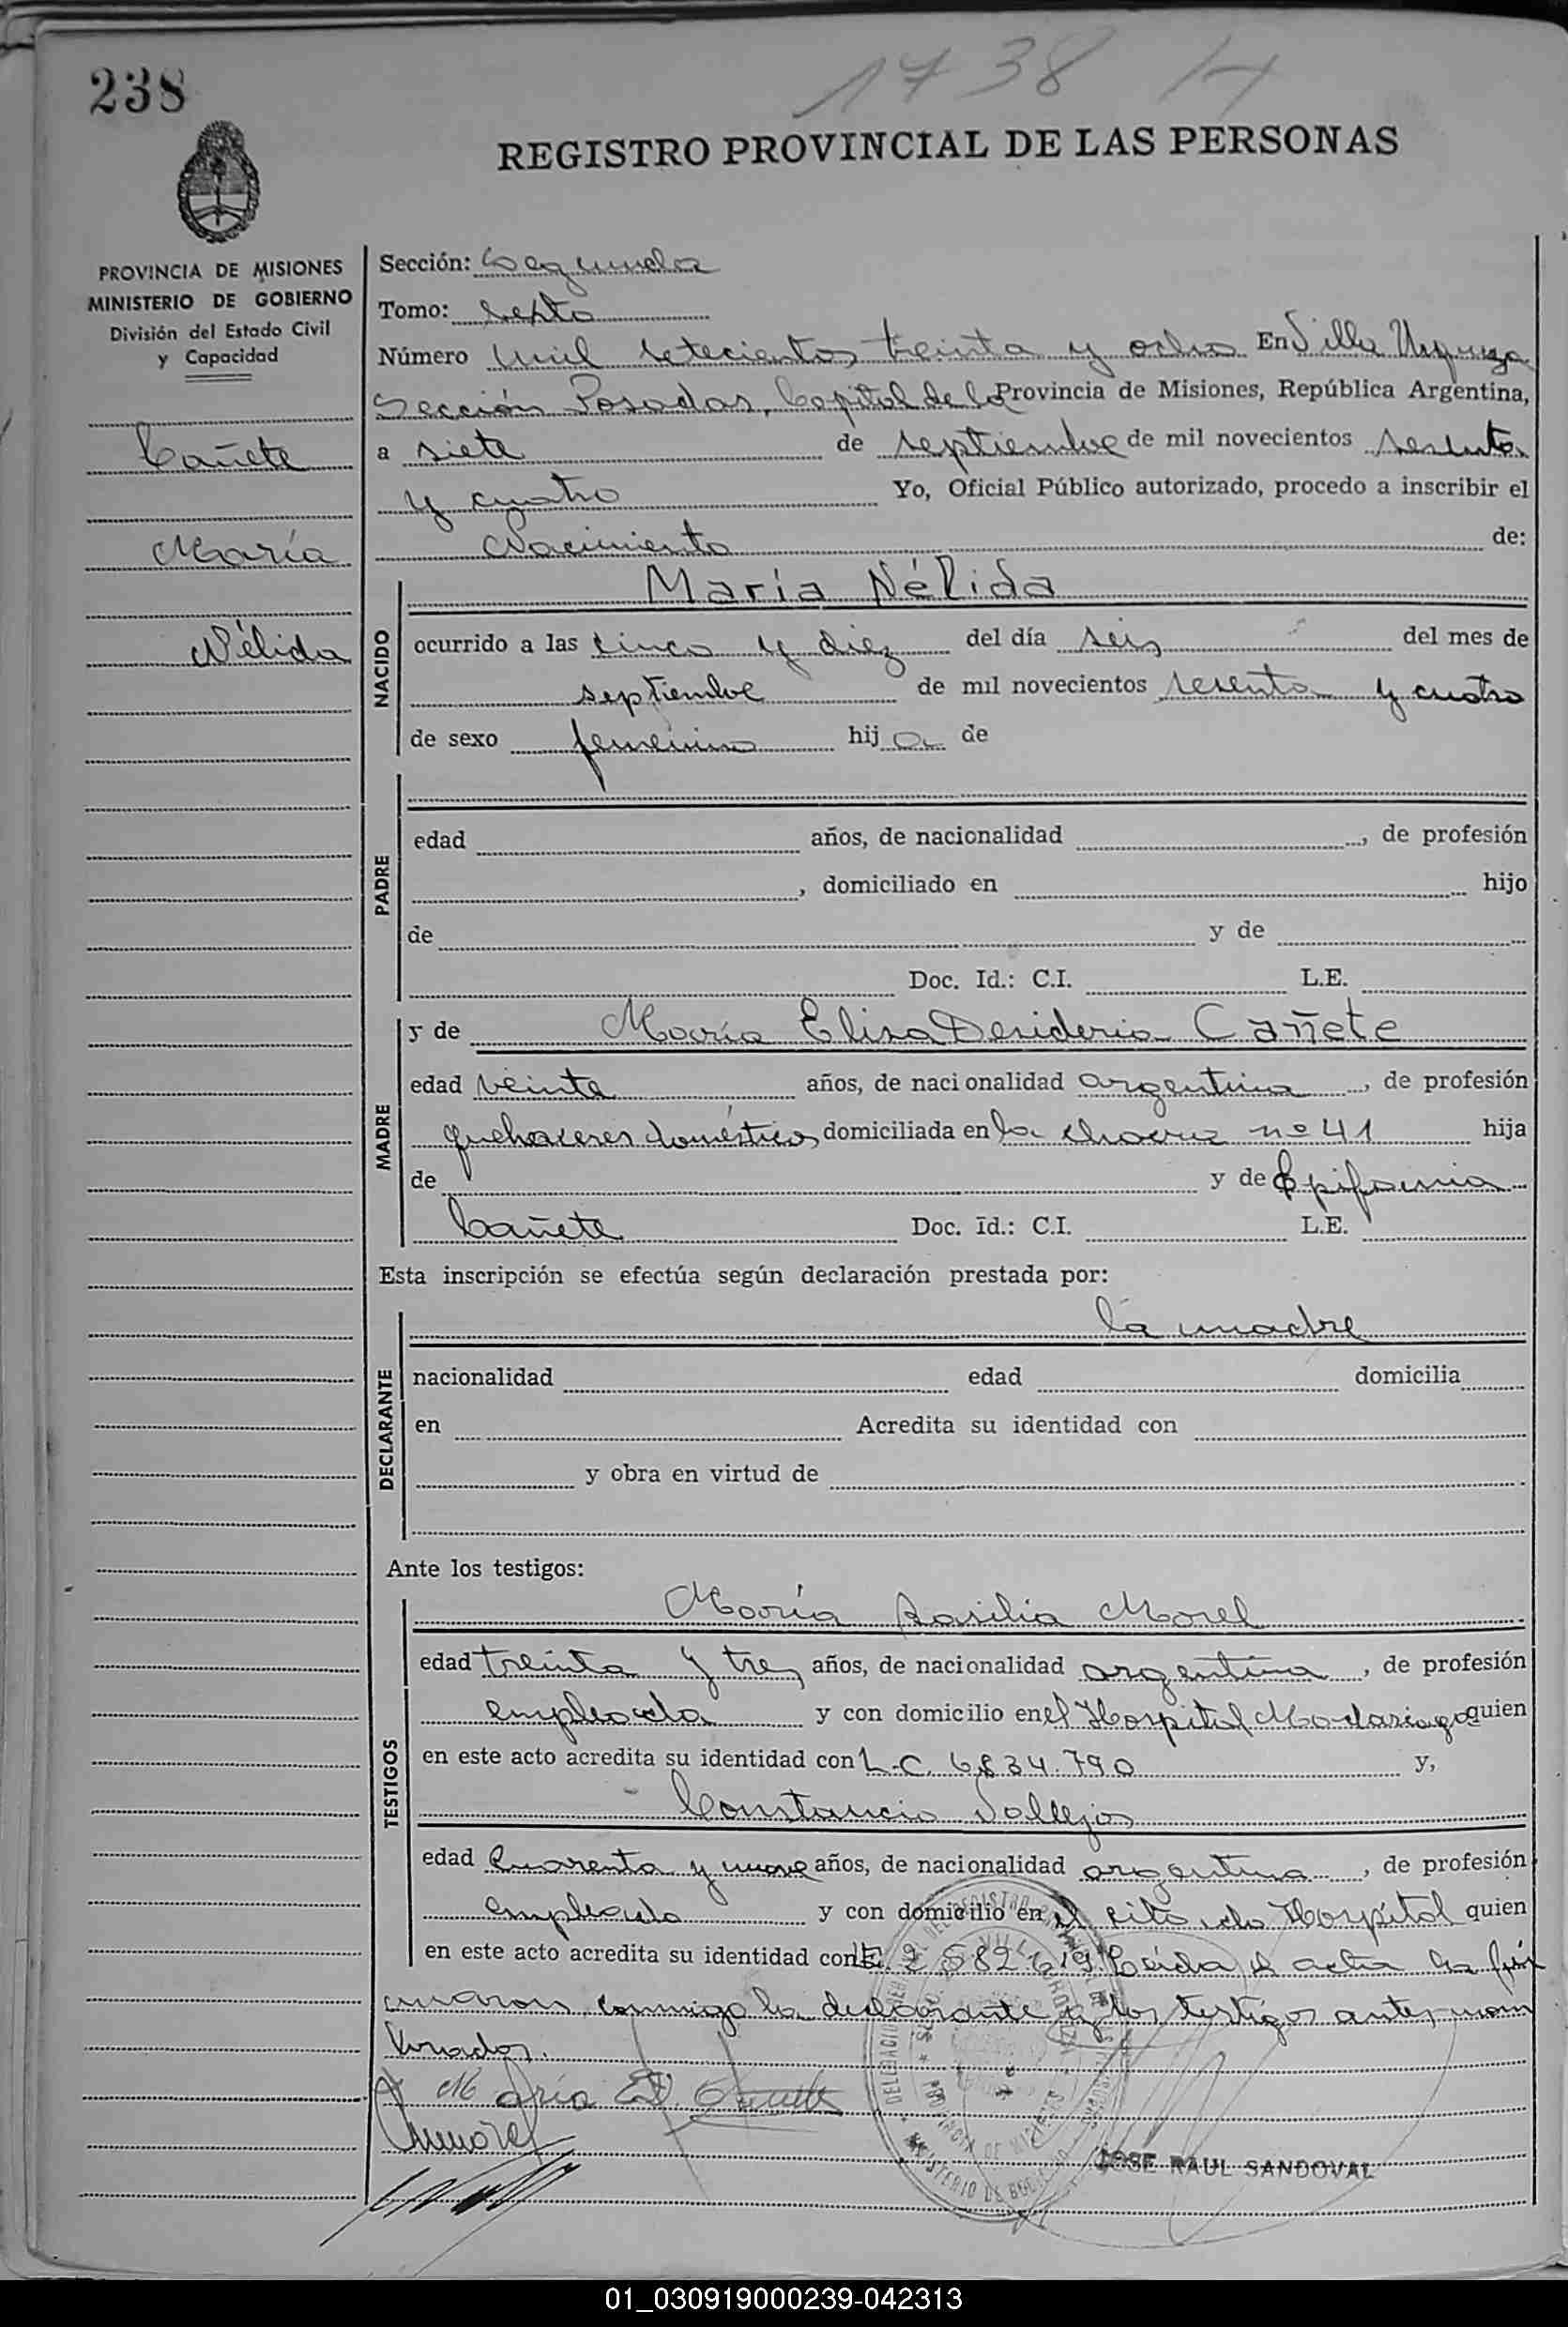 238
1738 H
REGISTRO PROVINCIAL DE LAS PERSONAS
PROVINCIA DE MISIONES
MINISTERIO DE GOBIERNO
División del Estado Civil
y Capacidad
Cañete
María
Nélida
Sección: Segunda
Tomo: Septo
Número Mil setecientos treinta y ocho En Villa Urquiza
Sección Posadas, Capital de la Provincia de Misiones, República Argentina,
a siete de septiembre de mil novecientos sesenta
y cuatro Yo, Oficial Público autorizado, procedo a inscribir el
Nacimiento de:
NACIDO
María Nélida
ocurrido a las cinco y diez del día seis del mes de
septiembre de mil novecientos sesenta y cuatro
de sexo femenino hij a de
PADRE
edad años, de nacionalidad , de profesión
, domiciliado en hijo
de y de
Doc. Id.: C.I. L.E.
MADRE
y de María Elisa Desideria Cañete
edad veinte años, de nacionalidad argentina , de profesión
quehaceres domésticos domiciliada en la chacra nº 41 hija
de y de Epifania
Cañete Doc. Id.: C.I. L.E.
Esta inscripción se efectúa según declaración prestada por:
DECLARANTE
la madre
nacionalidad edad domicilia
en Acredita su identidad con
y obra en virtud de
Ante los testigos:
TESTIGOS
María Basilia Morel
edad treinta y tres años, de nacionalidad argentina , de profesión
empleada y con domicilio en el Hospital Madariaga quien
en este acto acredita su identidad con L.C. 6.834.790 y,
Constancio Vallejos
edad Cuarenta y nueve años, de nacionalidad argentina , de profesión
empleado y con domicilio en el citado Hospital quien
en este acto acredita su identidad con L.E. 2 582 619 Leída el acta la fir
maron conmigo la declarante y los testigos antes nom
brados.
María E D. Cañete
MMorel
JOSE RAUL SANDOVAL
01_030919000239-042313